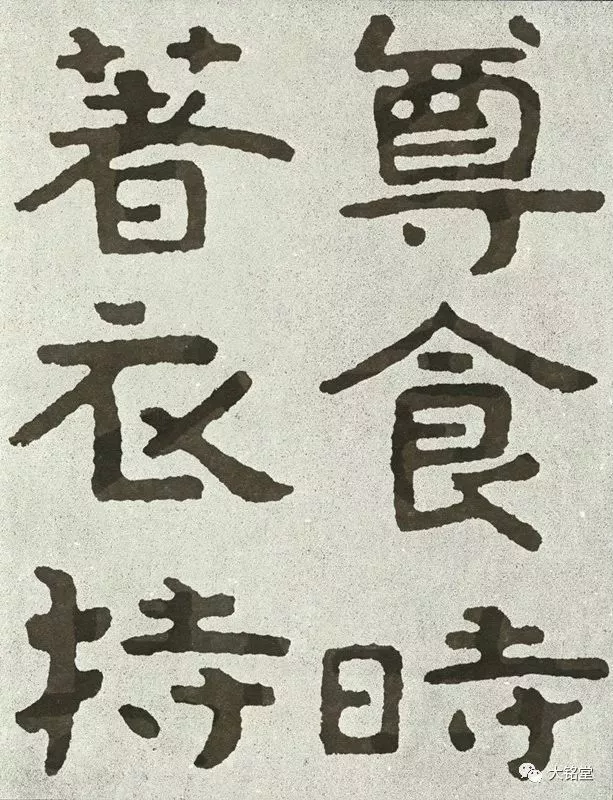 尊食時
著衣持
大铭堂